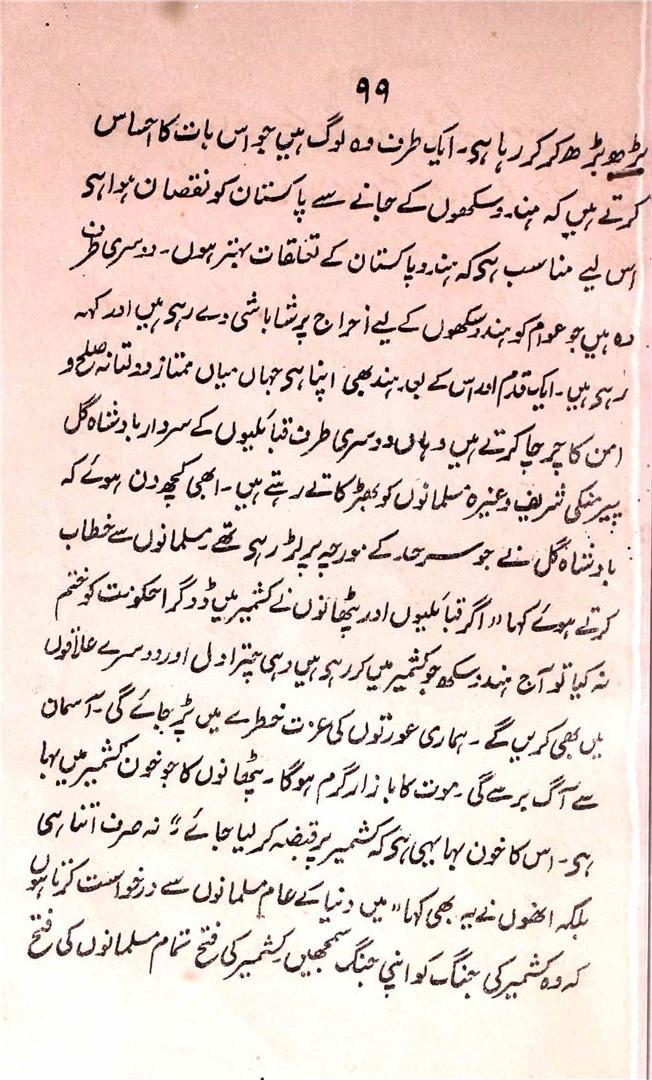 ۹۹
بڑھ بڑھ کر کر رہا ہی۔ ایک طرف وہ لوگ ہیں جو اس بات کا احساس
کرتے ہیں کہ ہندو سکھوں کے جانے سے پاکستان کو نقصان ہوا ہی
اس لیے مناسب ہی کہ ہند و پاکستان کے تعلقات بہتر ہوں۔ دوسری طرف
وہ ہیں جو عوام کو ہندو سکھوں کے لیے اخراج پر شاباشی دے رہی ہیں اور کہہ
رہی ہیں۔ ایک قدم اور اس کے بعد ہند بھی اپنا ہی جہاں میاں ممتاز دولتانہ صلح و
امن کا چرچا کرتے ہیں وہاں دوسری طرف قبائلیوں کے سردار بادشاہ گل
پیر منکی شریف وغیرہ مسلمانوں کو بھڑکاتے رہتے ہیں۔ ابھی کچھ دن ہوئے کہ
بادشاہ گل نے جو سرحد کے مورچہ پر لڑ رہی تھے۔ مسلمانوں سے خطاب
کرتے ہوئے کہا " اگر قبائلیوں اور پٹھانوں نے کشمیر میں ڈوگرا حکومت کو ختم
نہ کیا تو آج ہندو سکھ جو کشمیر میں کر رہی ہیں وہی چترا دل اور دوسرے علاقوں
میں بھی کریں گے۔ ہماری عورتوں کی عزت خطرے میں پڑ جائے گی۔ آسمان
سے آگ برسے گی۔ موت کا بازار گرم ہوگا۔ پٹھانوں کا جو خون کشمیر میں بہا
ہی۔ اس کا خون بہا یہی ہی کہ کشمیر پر قبضہ کر لیا جائے " نہ صرف اتنا ہی
بلکہ انھوں نے یہ بھی کہا " میں دنیا کے عام مسلمانوں سے درخواست کرتا ہوں
کہ وہ کشمیر کی جنگ کو اپنی جنگ سمجھیں۔ کشمیر کی فتح تمام مسلمانوں کی فتح